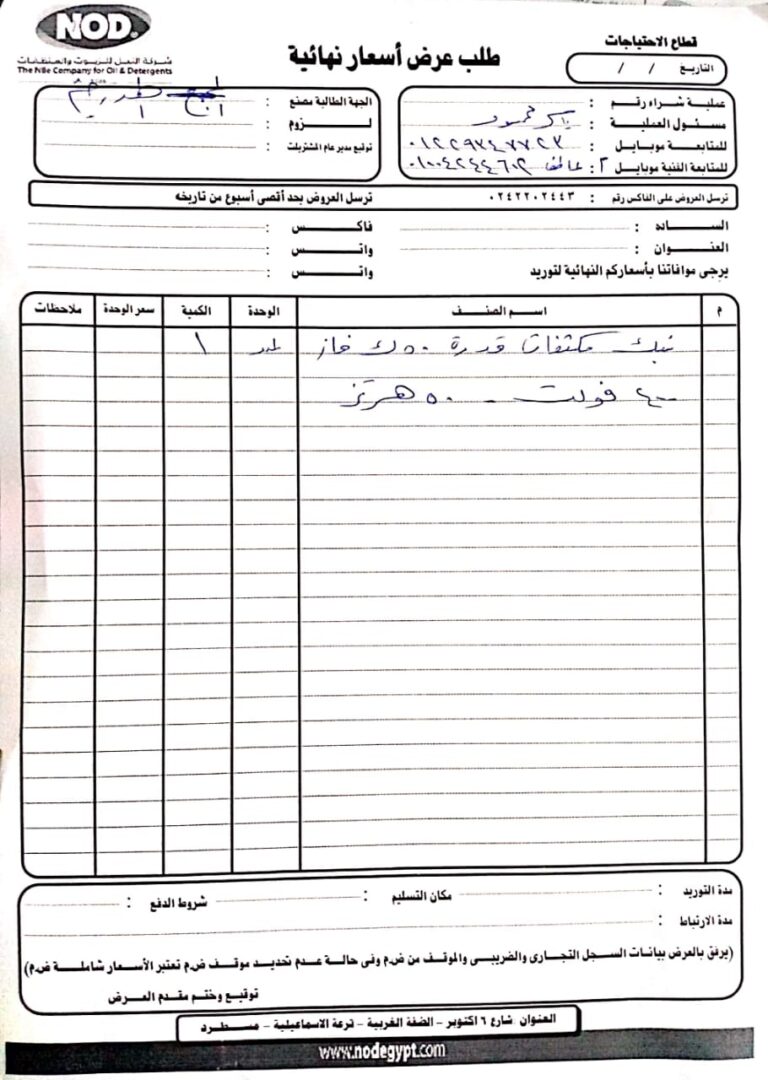 NOD.
شركة النيل للزيوت والمنظفات
The Nile Company for Oil & Detergents
طلب عرض أسعار نهائية
قطاع الاحتياجات
التاريخ / /
عملية شراء رقم :
مسئول العملية : ياسر محمود
للمتابعة موبايل : ٠١٢٢٩٧٤٧٧٢٣
للمتابعة الفنية موبايل : ٢ عاطف ٠١٠٠٤٢٤٤٦٠٢
الجهة الطالبة مصنع :
لزوم :
توقيع مدير عام المشتريات :
ترسل العروض على الفاكس رقم : ٠٢٤٢٢٠٢٤٤٣ ترسل العروض بحد أقصى أسبوع من تاريخه
الساده : فاكس :
العنوان : واتس :
يرجى موافاتنا بأسعاركم النهائية لتوريد واتس :
م اسم الصنف الوحدة الكمية سعر الوحدة ملاحظات
بنك مكثفات قدرة ٥٠ ك فار ١
٤٠٠ فولت - ٥٠ هرتز
مدة التوريد : مكان التسليم : شروط الدفع :
مدة الارتباط :
(يرفق بالعرض بيانات السجل التجارى والضريبى والموقف من ض.م وفى حالة عدم تحديد موقف ض.م تعتبر الأسعار شاملة ض.م)
توقيع وختم مقدم العرض
العنوان : شارع ٦ اكتوبر - الضفة الغربية - ترعة الاسماعيلية - مسطرد
www.nodegypt.com